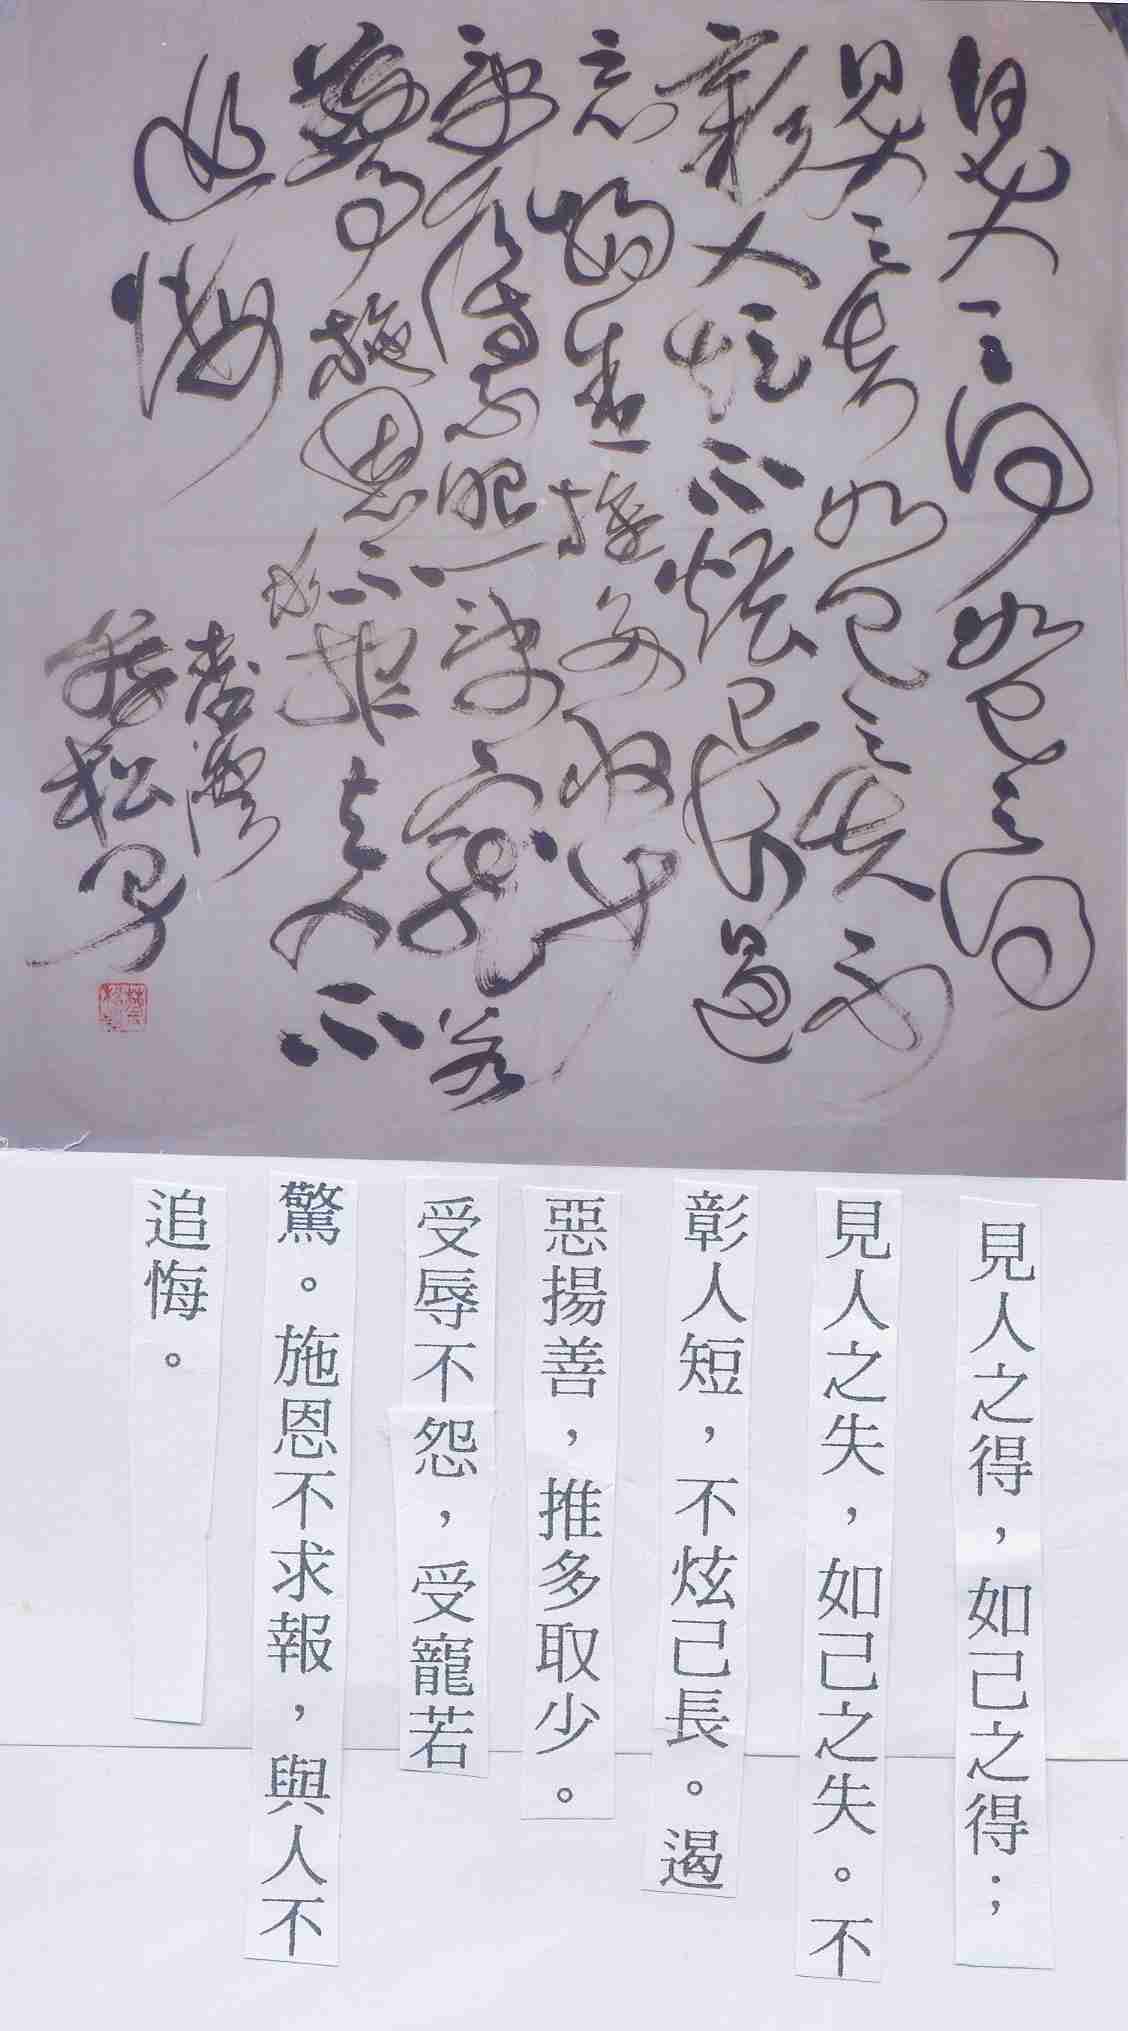 見人之得如己之得
見人之失如己之失不
彰人短不炫己長遏
惡揚善推多取少
受辱不怨受寵若
驚施恩不求報与人不
追悔
臺灣
見人之得，如己之得；
見人之失，如己之失。不
彰人短，不炫己長。遏
惡揚善，推多取少。
受辱不怨，受寵若
驚。施恩不求報，與人不
追悔。